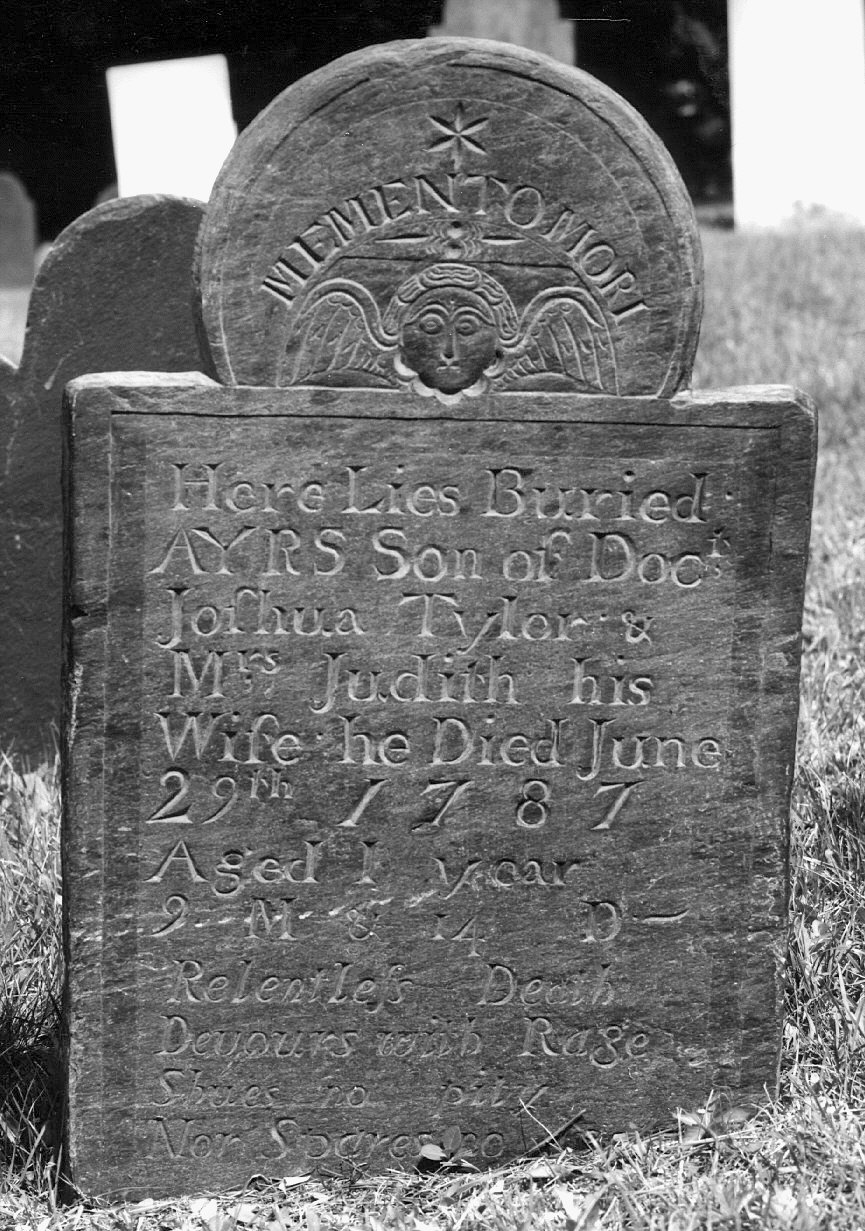 MEMENTO MORI
Here Lies Buried
AYRS Son of Docr
Joſhua Tylor &
Mrs Judith his
Wife he Died June
29th 1787
Aged 1 year
9 M & 14 D
Relentleſs Death
Devours with Rage
Shues no pity
Nor Spares no